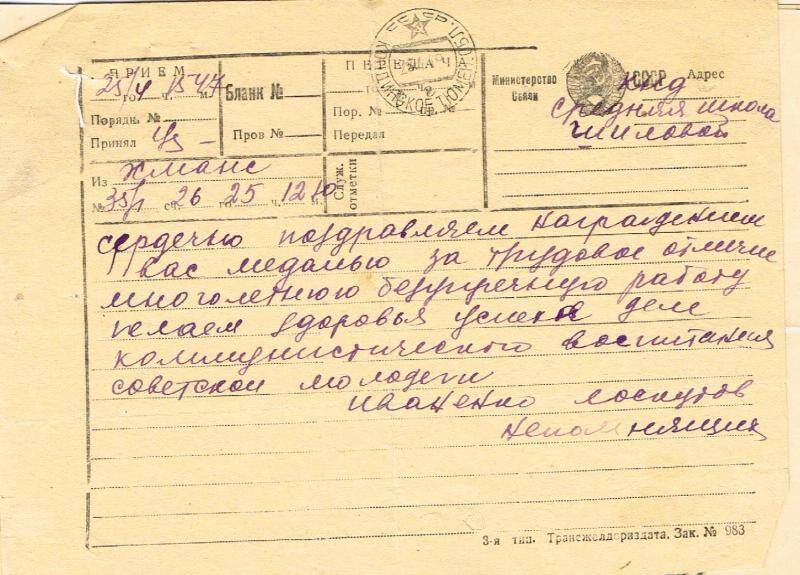 ПРИЕМ
25/4 15 47
го ч. м.
Порядк. №
Принял
Бланк №
Пров №
ПЕРЕДАЧА
го
Пор. №
Передал
КОНДИНСКОЕ ТЮМЕН. ОБЛ.
Министерство Связи СССР
Адрес
средняя школа
Шиловой
Из Хманс
№ 35/1 сч. 26 го 25 ч. 12 10 м.
Служ. отметки
сердечно поздравляем награждением
вас медалью за трудовое отличие
многолетнюю безупречную работу
желаем здоровья успехов деле
коммунистического воспитания
советской молодежи
Иваненко Лоскутов
Непомнящих
3-я тип. Трансжелдориздата. Зак. № 983